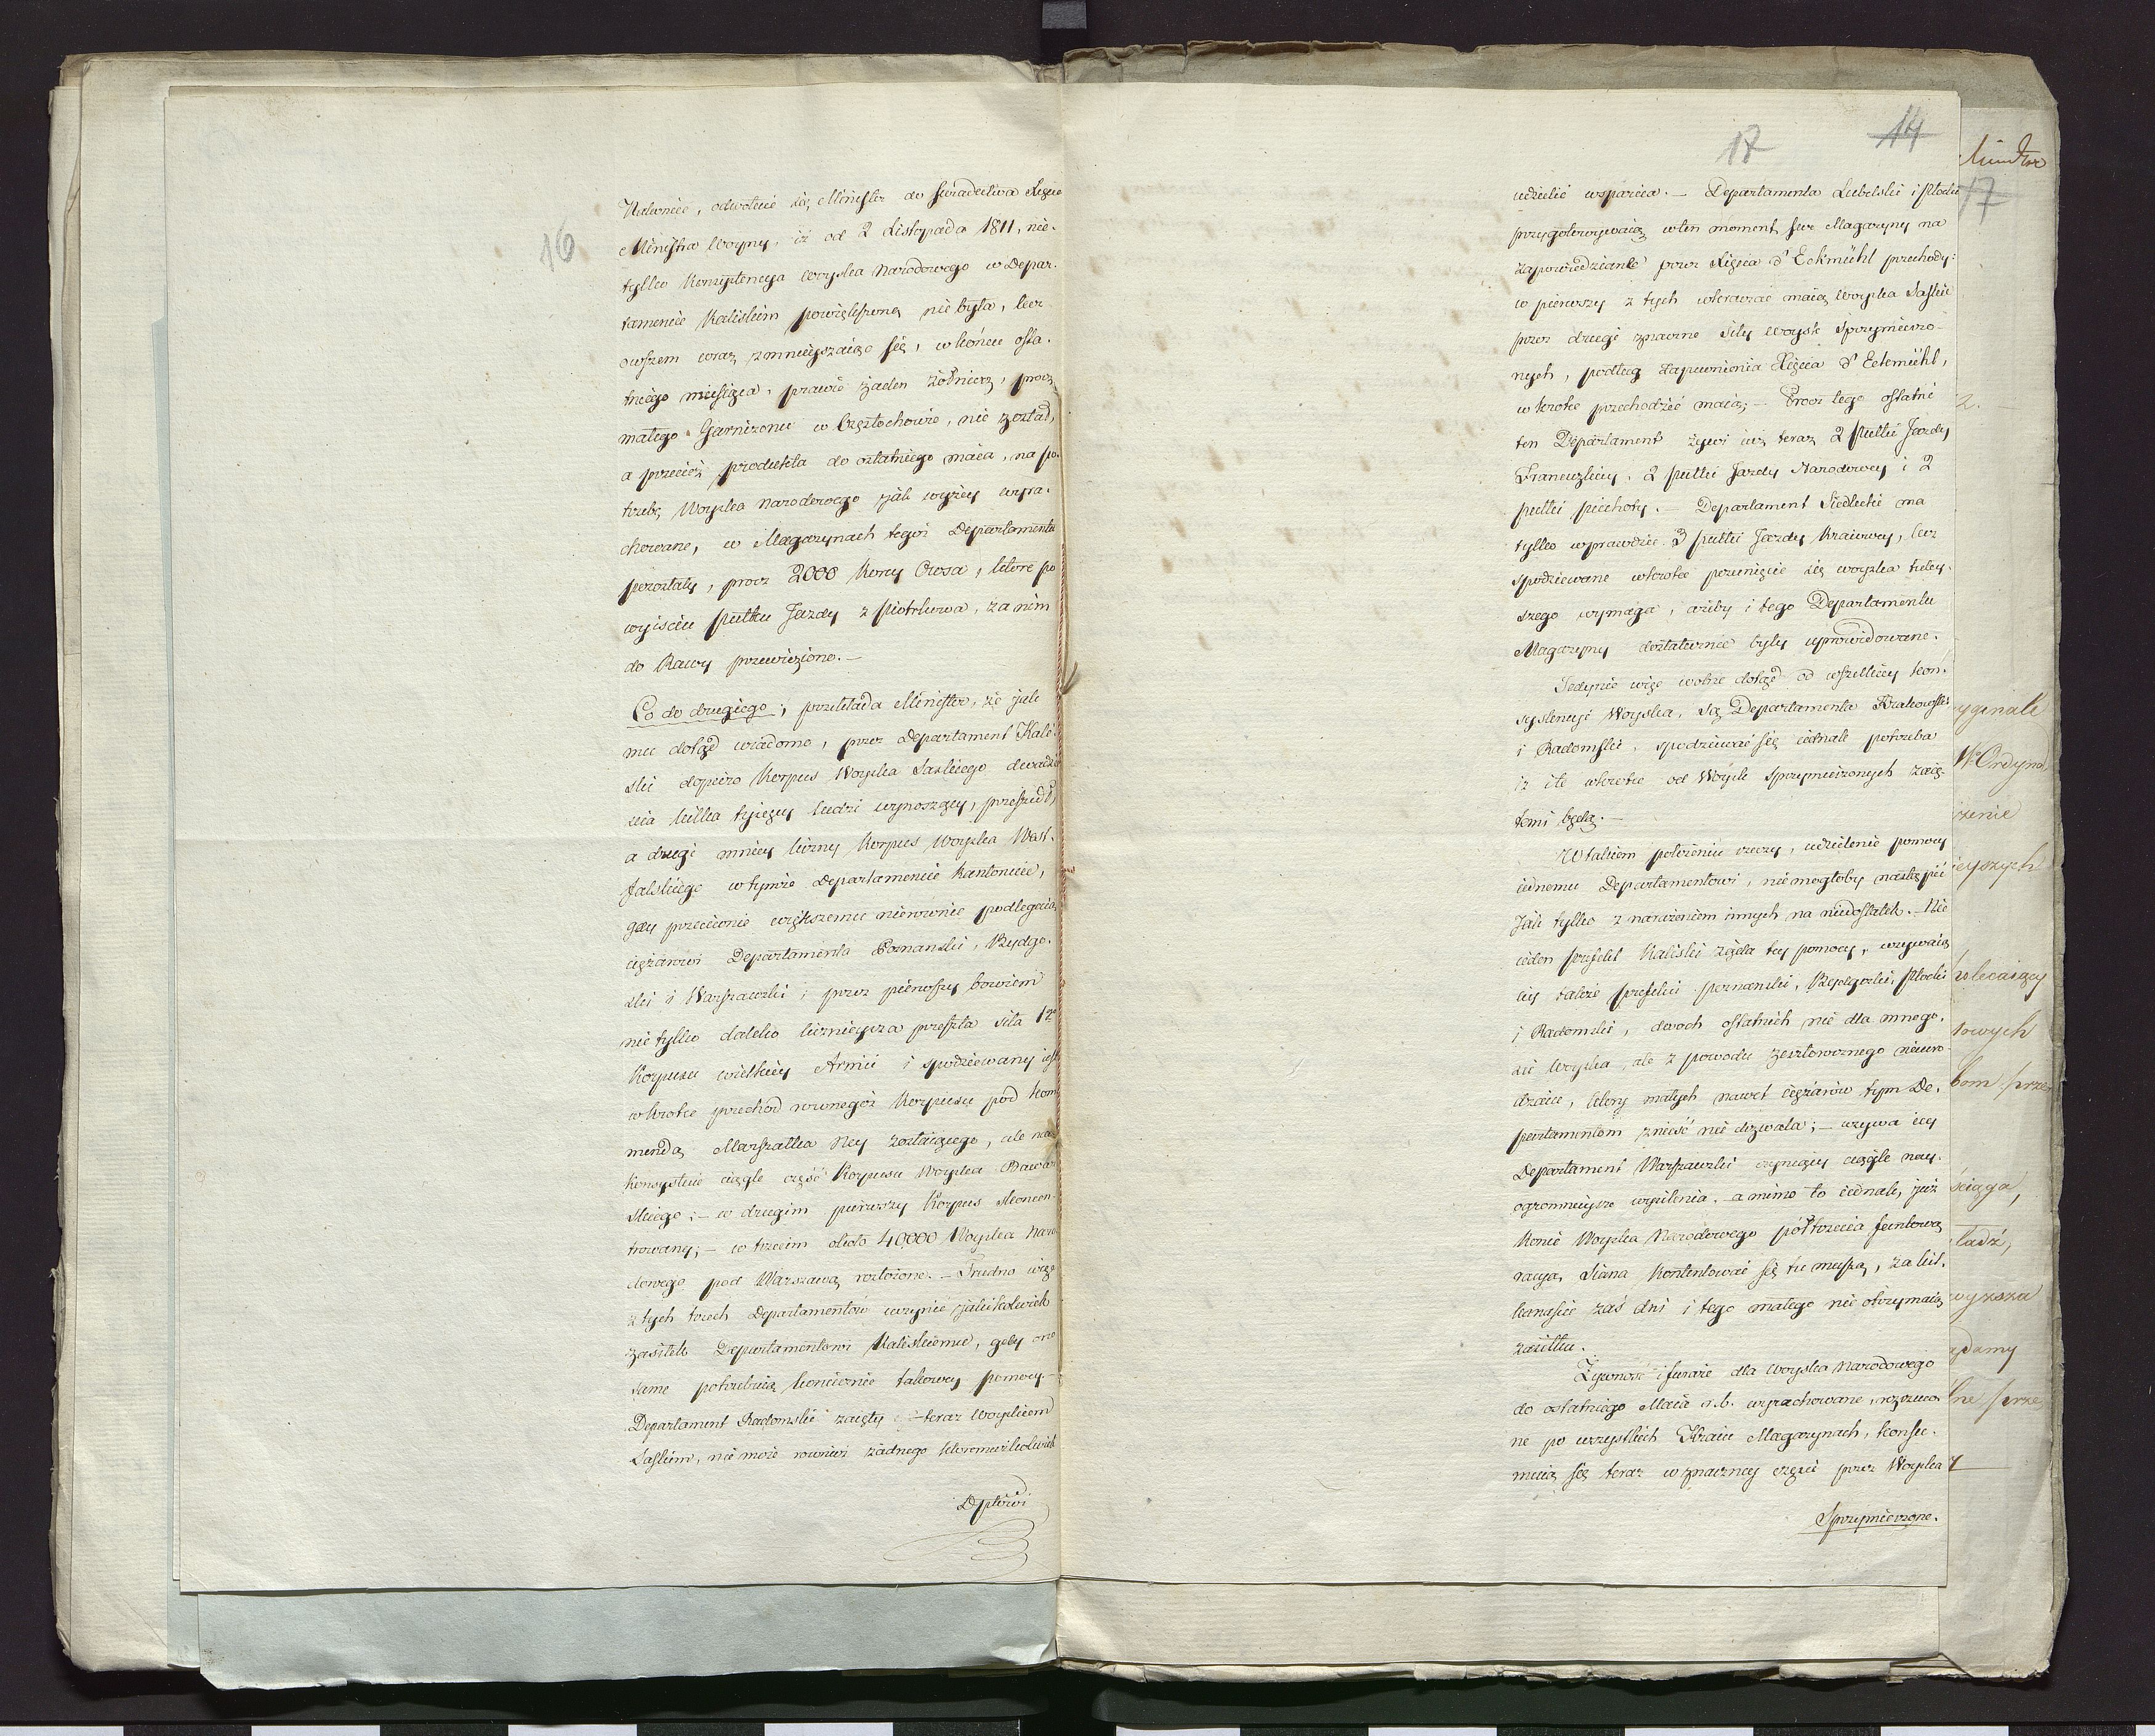 16
Nakoniec, odwołuie się Minister do świadectwa Xięcia
Ministra Woyny, iż od 2 Listopada 1811, nie-
tylko Kompletencya Woyska Narodowego w Depar-
tamencie Kaliskim powiększoną nie była, lecz
owszem coraz zmnieyszaiąc się, w końcu osta-
tniego miesiąca, prawie żaden żołnierz, procz
małego Garnizonu w Częstochowie, nie został,
a przecież produkta do ostatniego maia, na po-
trzebę Woyska Narodowego jak wyżey wyra-
chowane, w Magazynach tegoż Departamentu
pozostały, procz 2000 Korcy Owsa, ktore po
wyisciu pułku Jazdy z Piotrkowa, za nim
do Rawy przewieziono. —
Co do drugiego; przekłada Minister, że jak
mu dotąd wiadomo, przez Departament Kali-
ski dopiero Korpus Woyska Saskiego dwadzie
scia kilka tysięcy ludzi wynoszący, przeszedł,
a drugi mniey liczny Korpus Woyska West-
falskiego w tymże Departamencie kantonuie,
gdy przeciwnie większemu nierównie podlegaią
ciężarowi Departamenta Poznanski, Bydgo-
ski i Warszawski; przez pierwszy bowiem
nie tylko daleko licznieysza przeszła siła 1go
Korpusu wielkiey Armii i spodziewany iest
wkrotce przechod rownegoż Korpusu pod kom
mendą Marszałka Ney zostaiącego, ale na
konsystuie ciągle część Korpusu Woyska Bawar
skiego; — w drugim pierwszy Korpus skoncen-
trowany; — w trzecim około 40,000 Woyska Naro
dowego pod Warszawą rozłożone. — Trudno więc
z tych trzech Departamentów uczynić jakikolwiek
zasiłek Departamentowi Kaliskiemu, gdy one
same potrzebuią koniecznie takowey pomocy. —
Departament Radomski zaięty teraz Woyskiem
Saskim, nie może rownież żadnego ktoremukolwiek
Dptówi
17 14
udzielić wsparcia. — Departamenta Lubelski i Płocki
przygotowywaią w ten moment swe Magazyny na
zapowiedziane przez Xięcia d'Eckmühl przechody:
w pierwszy z tych wkraczać maią Woyska Saskie
przez drugi znaczne siły Woysk Sprzymierzo-
nych, podług zapewnienia Xięcia d'Eckmühl,
wkrotce przechodzić maią; — Procz tego ostatni
ten Departament żywi iuż teraz 2 pułki Jazdy
Francuzkiey, 2 pułki Jazdy Narodowey i 2
pułki piechoty. — Departament Siedlecki ma
tylko wprawdzie 3 pułki Jazdy Kraiowey, lecz
spodziewane wkrotce posunięcie się woyska tutey-
szego wymaga, ażeby i tego Departamentu
Magazyny dostatecznie były uprowidowane.
Jedynie więc wolne dotąd od wszelkiey kon-
systencyi Woyska, są Departamenta Krakowski
i Radomski, spodziewać się iednak potrzeba
iż ile wkrotce od Woysk Sprzymierzonych zaię-
temi będą. —
W takiem położeniu rzeczy, udzielenie pomocy
iednemu Departamentowi, nie mogłoby nastąpić
Jak tylko z narażeniem innych na niedostatek. — Nie
ieden Prefekt Kaliski żąda tey pomocy, wzywaią
iey także Prefekci Poznanski, Bydgoski, Płocki
i Radomski, dwoch ostatnich nie dla mnogo-
sci Woyska, ale z powodu zeszłorocznego nieuro-
dzaiu, ktory małych nawet ciężarów tym De-
partamentom znieść nie dozwala; — wzywa iey
Departament Warszawski czyniący ciągle nay-
ogromnieysze wysilenia. — a mimo to iednak, już
Konie Woyska Narodowego półtrzecia funtową
racyą Siana kontentować się tu muszą, za kil-
kanaście zaś dni i tego małego nie otrzymaią
zasiłku.
Zywność i furaże dla Woyska Narodowego
do ostatniego Maia r. b. wyrachowane, rozrzuco-
ne po wszystkich Kraiu Magazynach, konsu-
muią się teraz w znaczney części przez Woyska
Sprzymierzone.
17
2. —
W. Ordyna
rzenie
eyszych
owych
bom przez
ściąga,
ladź,
wyższa
ądamy